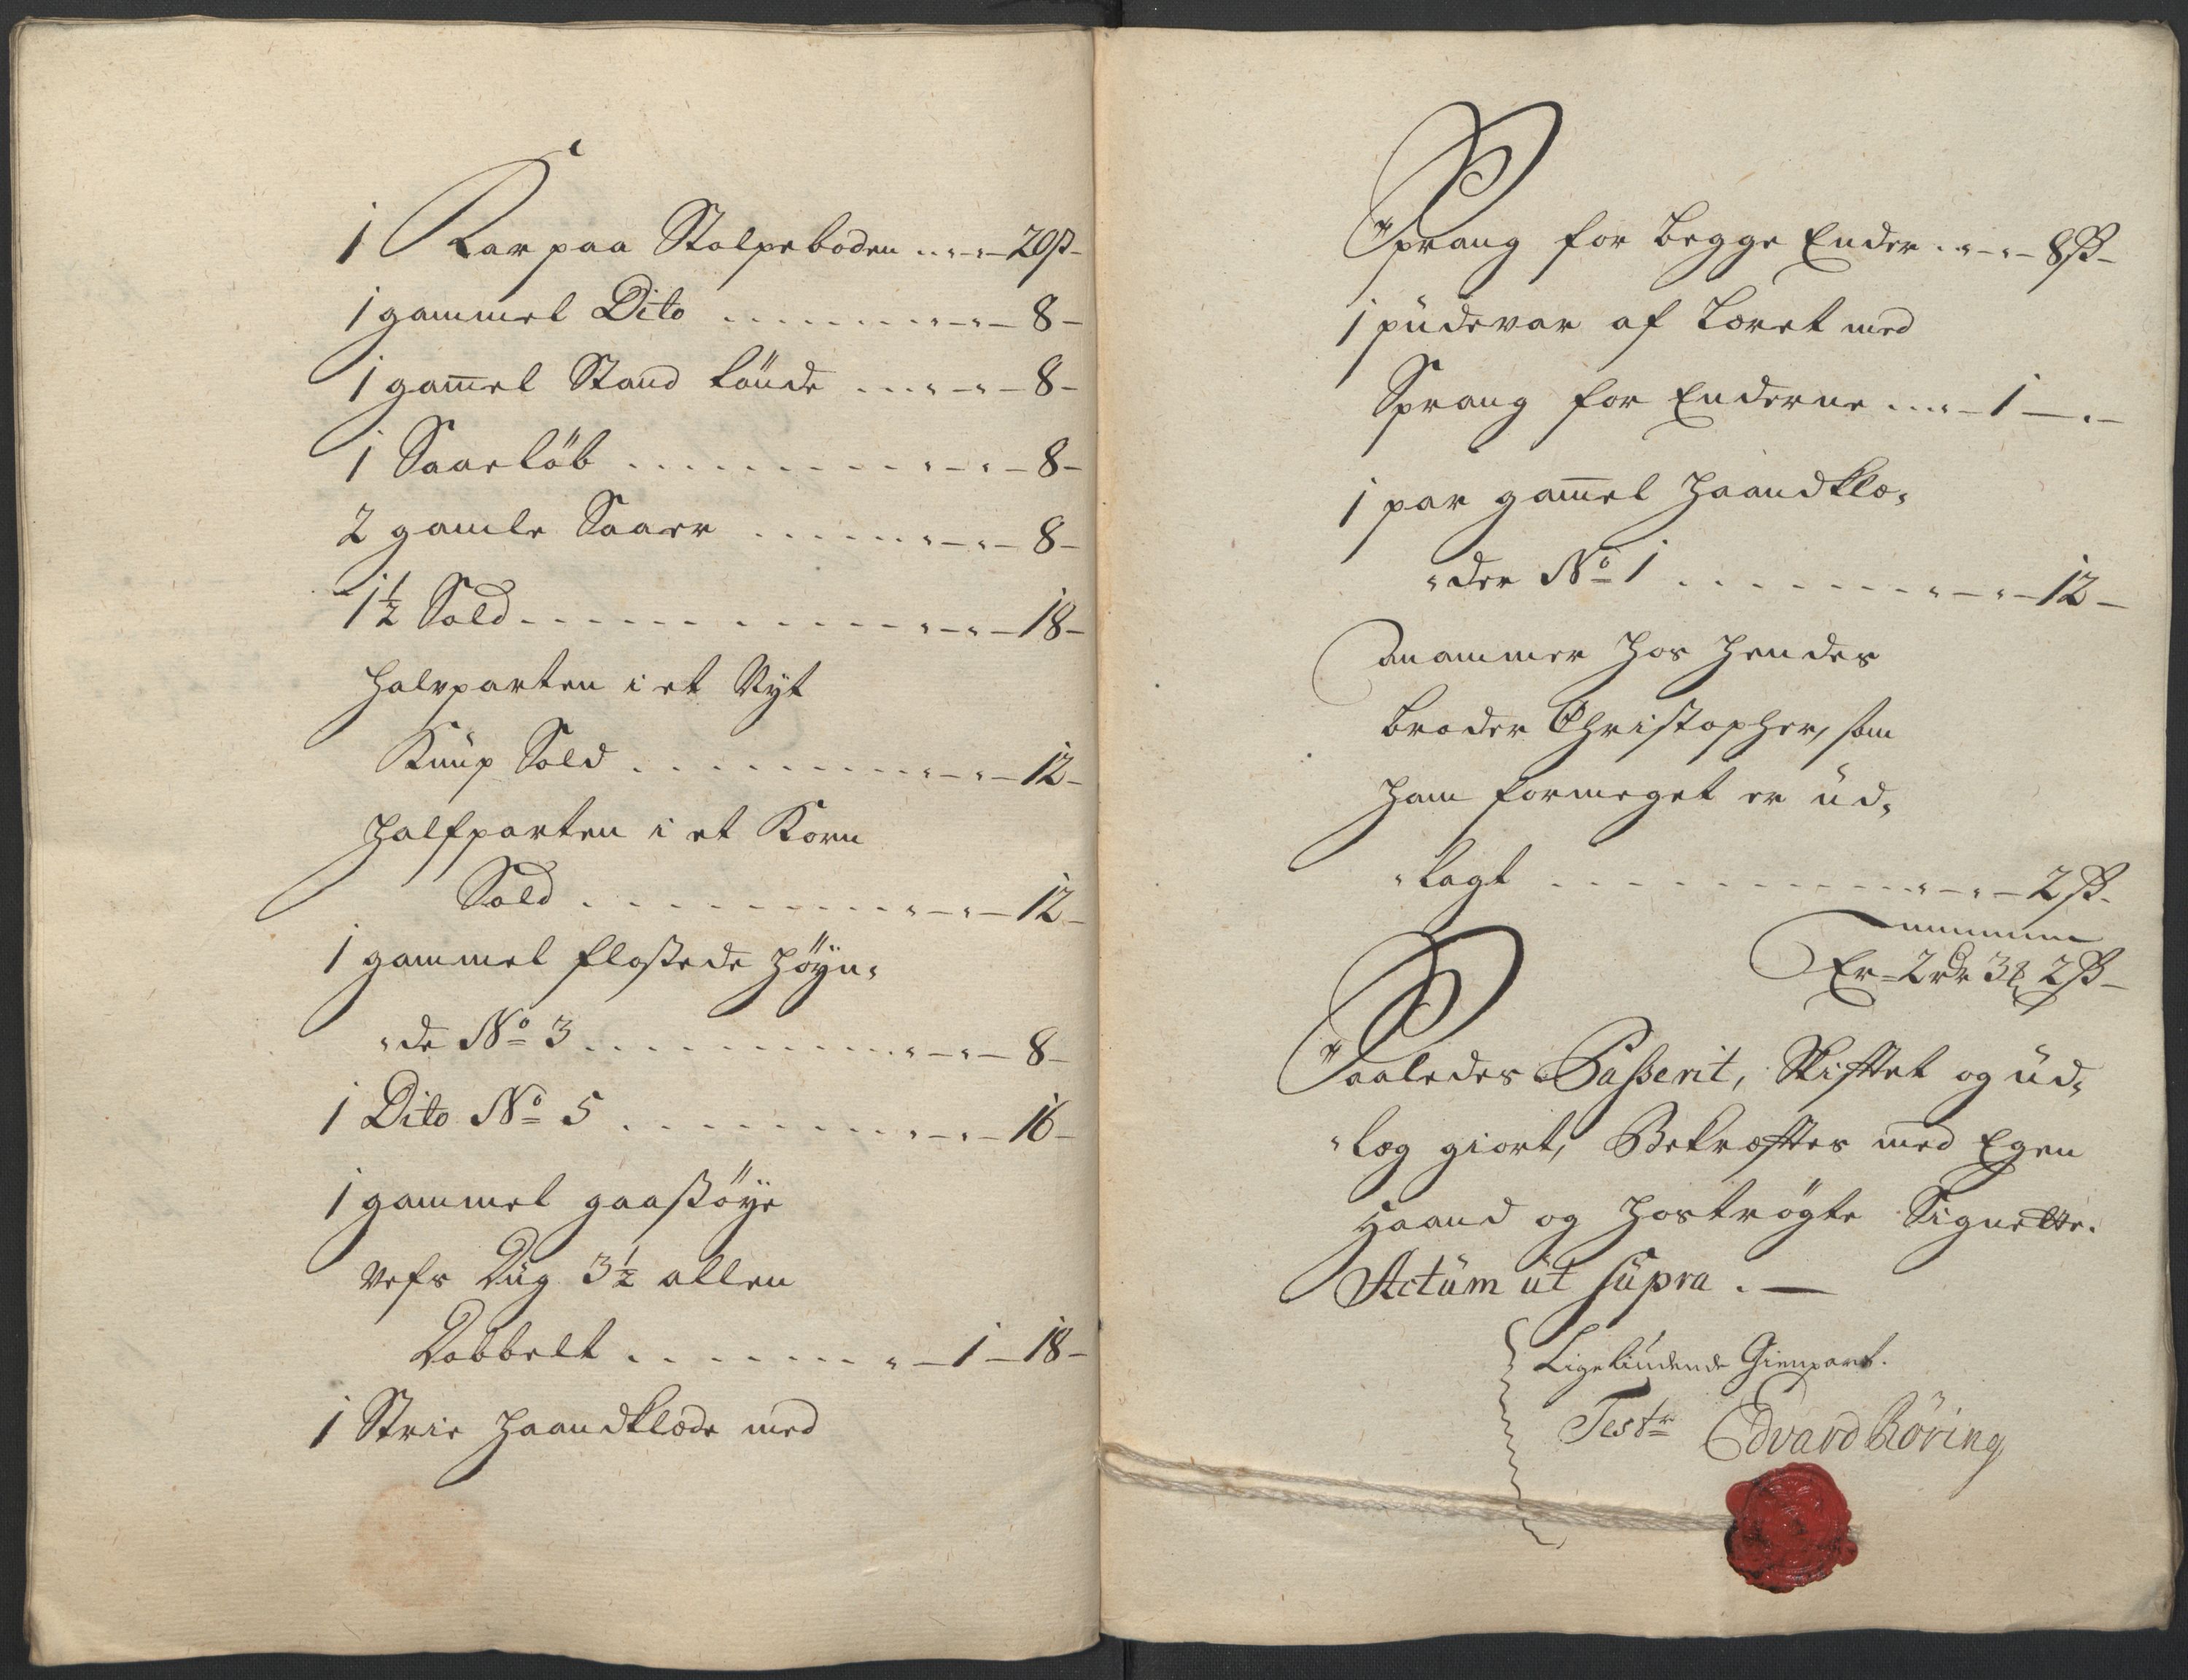 1 Kar paa Stolpeboden ..„-„-20ß-
1 gammel Dito ........„-„-8-
1 gam̄el Stand tönde ...„-„-8-
1 Saarlöb ..........„-„-8-
2 gamle Saaer ......„-„-8-
1½ Sold..........„-„-18-
Halvparten i et Nyt
Knüp Sold ........„-„-12-
Halfparten i et Korn
Sold .........„-„-12-
1 gammel floßede Höyn„
„de No 3 .........„-„-8-
1 Dito No 5 ........„-„-16-
1 gammel gaasöye
vefs Düg 3½ allen
Dobbelt .......„-1-18-
1 Strie Haandklæde med
Sprang for begge Ender .„-„-8ß-
1 püdevar af Læret med
Sprang for Enderne ...„-1-„-
1 par gam̄el Haandklæ„
„der No 1 .......„-„-12-
Annammer hos hendes
broder Christopher, som
ham formeget er üd„
„lagt ..........„-„-2ß-
Er-2rdr 3 2ß-
Saaledes Passerit, Skiftet og üd„
„læg giort, Bekræftes med Egen
Haand og hoströgte Signette.
Actüm üt süpra . —
Ligelüdende Gienpart.
Testr Edvard Röring